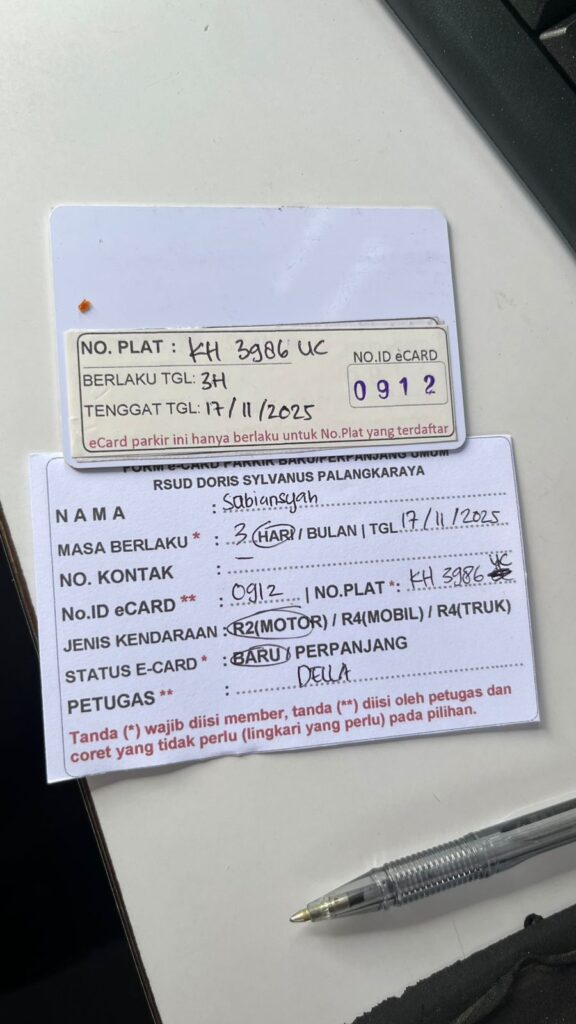 NO. PLAT : KH 3986 UC
NO.ID èCARD
BERLAKU TGL: 3H
0912
TENGGAT TGL: 17/11/2025
eCard parkir ini hanya berlaku untuk No.Plat yang terdaftar
FORM e-CARD PARKIR BARU/PERPANJANG UMUM
RSUD DORIS SYLVANUS PALANGKARAYA
NAMA : Sabiansyah
MASA BERLAKU * : 3 HARI / BULAN | TGL 17/11/2025
NO. KONTAK :
No.ID eCARD ** : 0912 | NO.PLAT *: KH 3986 UC
JENIS KENDARAAN : R2(MOTOR) / R4(MOBIL) / R4(TRUK)
STATUS E-CARD * : BARU / PERPANJANG
PETUGAS ** : DELLA
Tanda (*) wajib diisi member, tanda (**) diisi oleh petugas dan
coret yang tidak perlu (lingkari yang perlu) pada pilihan.